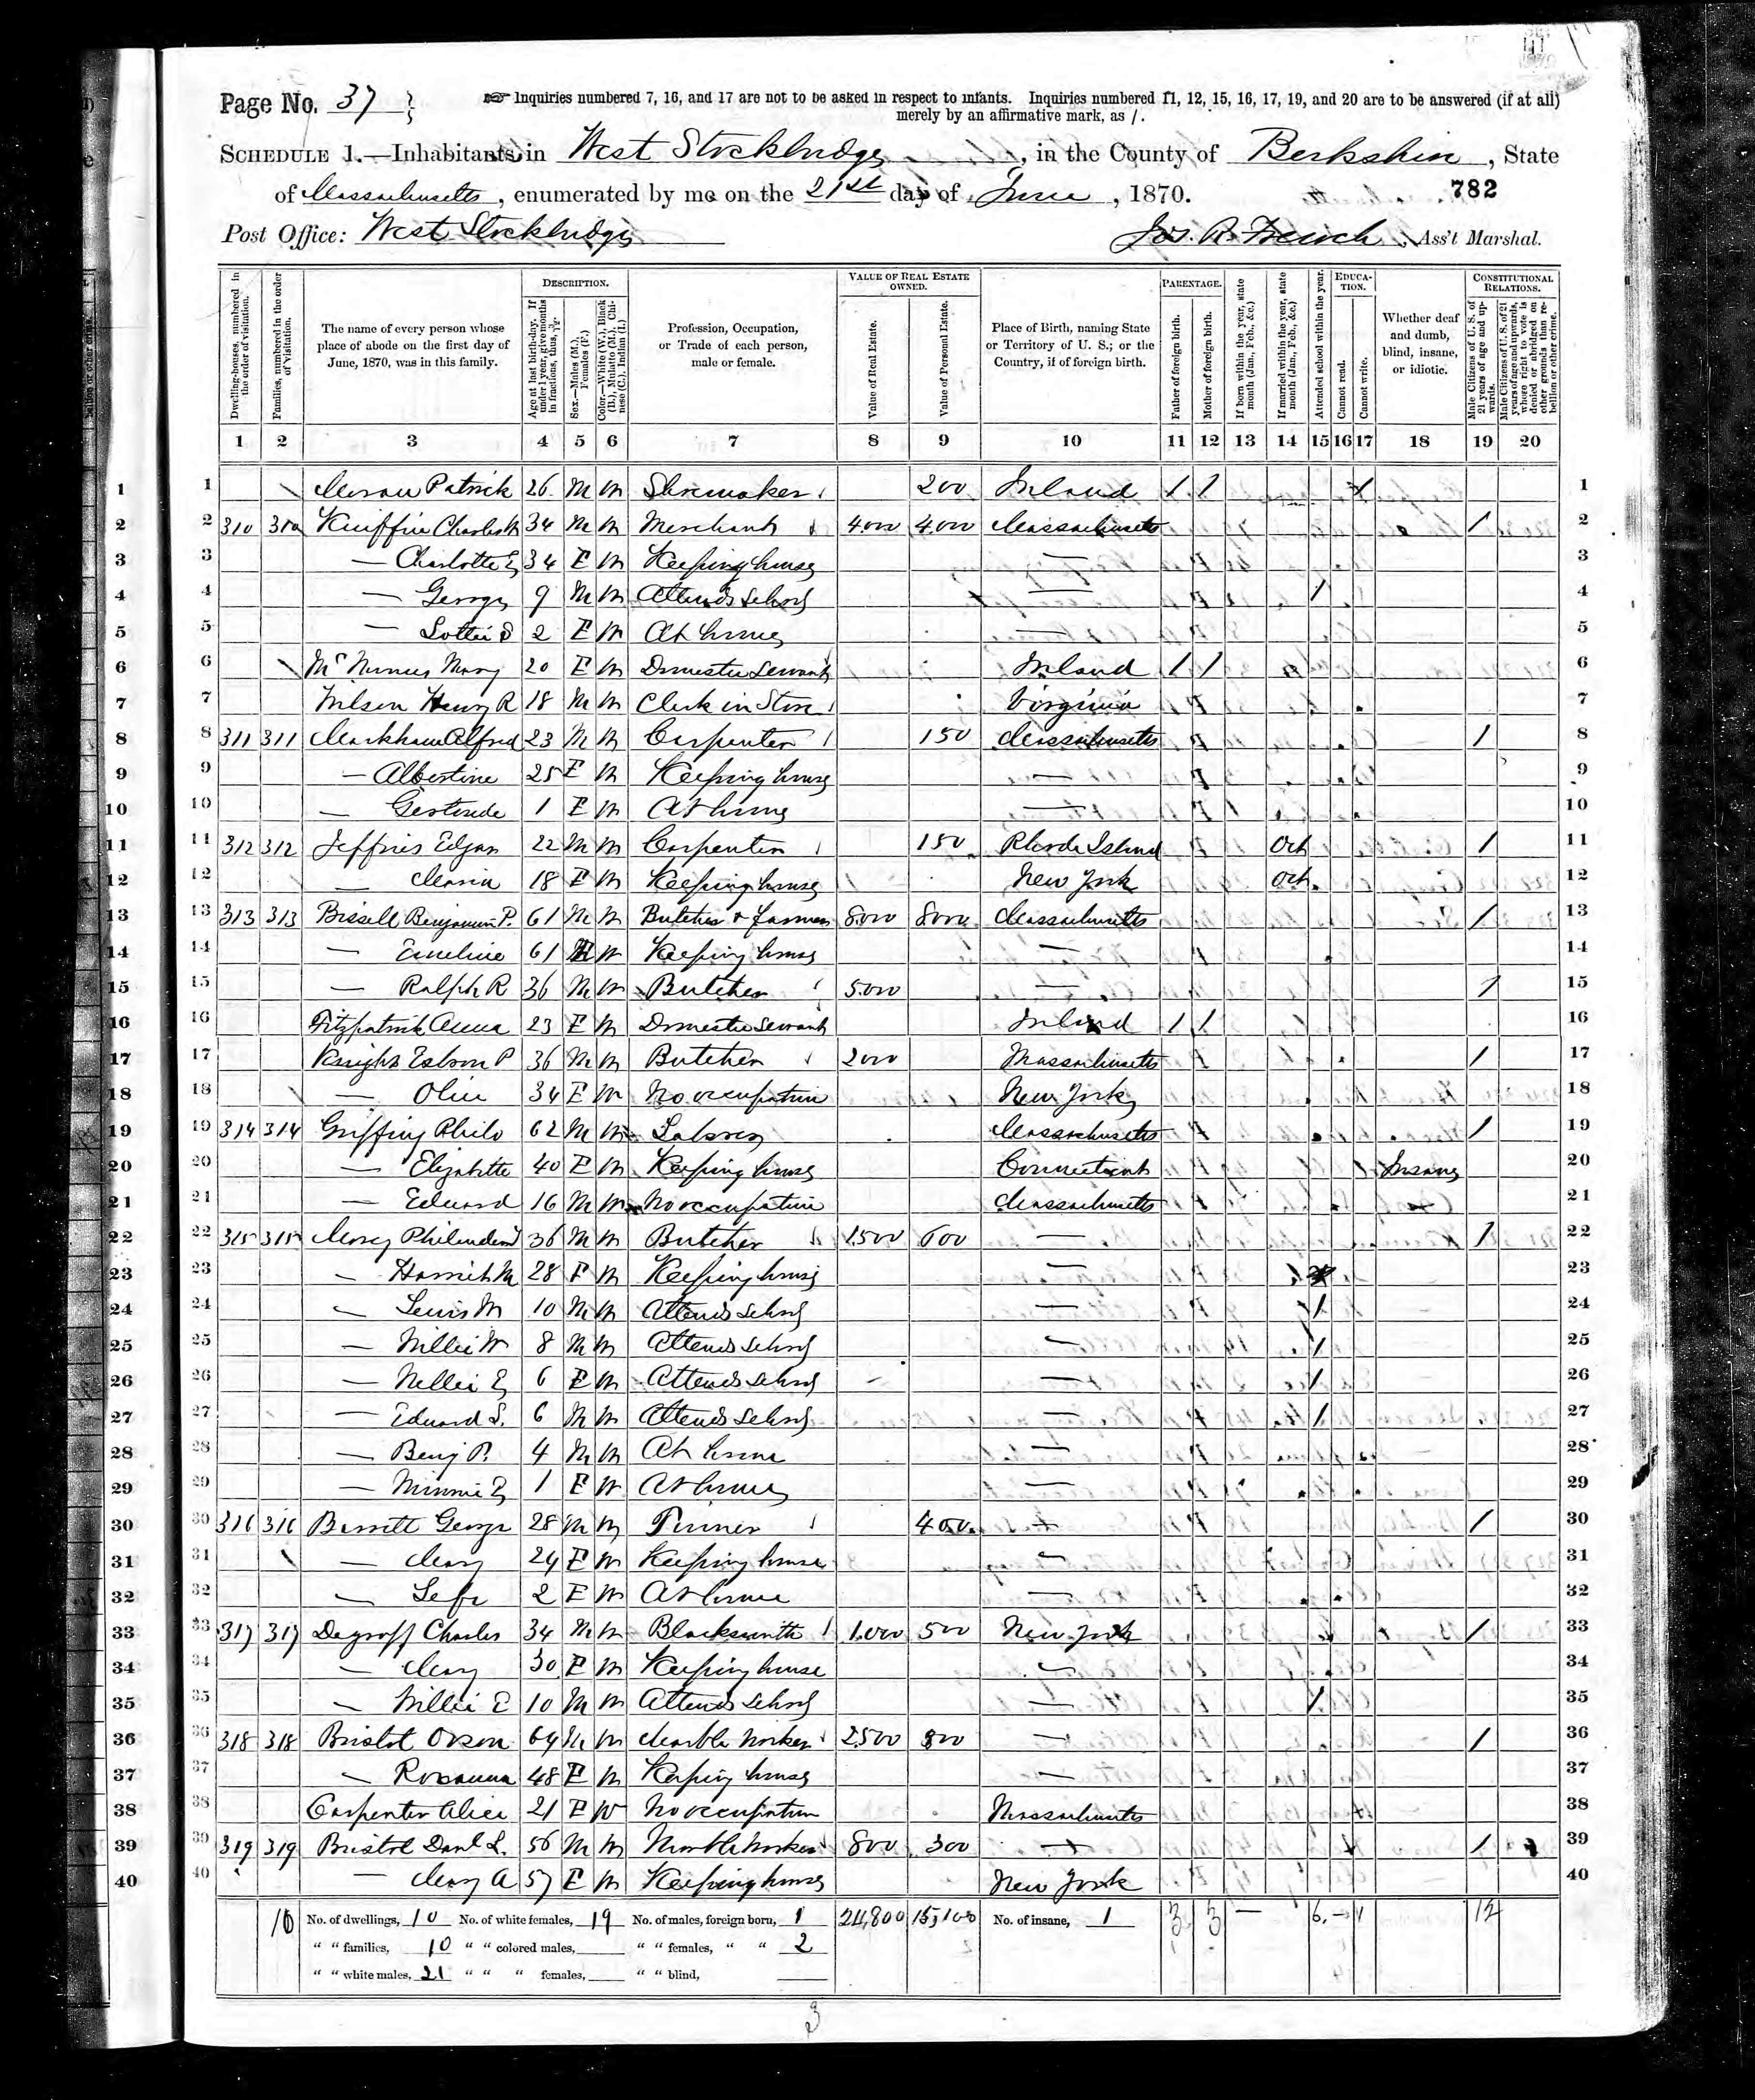 Page No. 37
Inquiries numbered 7, 16, and 17 are not to be asked in respect to infants. Inquiries numbered 11, 12, 15, 16, 17, 19, and 20 are to be answered (if at all)
merely by an affirmative mark, as /.
SCHEDULE 1.—Inhabitants in West Stockbridge, in the County of Berkshire, State
of Massachusetts, enumerated by me on the 21st day of June, 1870.
782
Post Office: West Stockbridge
Jos. R. French, Ass't Marshal.
Dwelling-houses, numbered in the order of visitation.
Families, numbered in the order of visitation.
The name of every person whose place of abode on the first day of June, 1870, was in this family.
DESCRIPTION.
Age at last birth-day. If under 1 year, give months in fractions, thus, 3/12.
Sex.—Males (M.), Females (F.)
Color.—White (W.), Black (B.), Mulatto (M.), Chinese (C.), Indian (I.)
Profession, Occupation, or Trade of each person, male or female.
VALUE OF REAL ESTATE OWNED.
Value of Real Estate.
Value of Personal Estate.
Place of Birth, naming State or Territory of U. S.; or the Country, if of foreign birth.
PARENTAGE.
Father of foreign birth.
Mother of foreign birth.
If born within the year, state month (Jan., Feb., &c.)
If married within the year, state month (Jan., Feb., &c.)
Attended school within the year.
EDUCATION.
Cannot read.
Cannot write.
Whether deaf and dumb, blind, insane, or idiotic.
CONSTITUTIONAL RELATIONS.
Male Citizens of U. S. of 21 years of age and upwards.
Male Citizens of U. S. of 21 years of age and upwards, whose right to vote is denied or abridged on other grounds than rebellion or other crime.
1 2 3 4 5 6 7 8 9 10 11 12 13 14 15 16 17 18 19 20
1 Moran Patrick 26 M W Shoemaker 200 Ireland / / / 1
2 310 310 Kniffin Charles W 34 M W Merchant 4000 4000 Massachusetts / 2
3 — Charlotte E 34 F W Keeping house — 3
4 — George 9 M W Attends School — / 4
5 — Lottie 2 F W At home — 5
6 Mary 20 F W Domestic Servant Ireland / / 6
7 Wilson Henry R 18 M W Clerk in Store Virginia 7
8 311 311 Markham Alfred 23 M W Carpenter 150 Massachusetts / 8
9 — Albertine 25 F W Keeping house — 9
10 — Gertrude 1 F W At home — 10
11 312 312 Jeffries Edgar 22 M W Carpenter 150 Rhode Island Oct / 11
12 — Maria 18 F W Keeping house New York Oct 12
13 313 313 Bissell Benjamin P. 61 M W Butcher & Farmer 8000 8000 Massachusetts / 13
14 — Emeline 61 F W Keeping house — 14
15 — Ralph R 36 M W Butcher 5000 — / 15
16 Fitzpatrick Anna 23 F W Domestic Servant Ireland / / 16
17 Knight P 36 M W Butcher 2000 Massachusetts / 17
18 — Olive 34 F W No occupation New York 18
19 314 314 Griffing Philo 62 M W Laborer Massachusetts / 19
20 — Elizabeth 40 F W Keeping house Connecticut / Insane 20
21 — Edward 16 M W No occupation Massachusetts 21
22 315 315 36 M W Butcher 1500 600 — / 22
23 — Harriet M 28 F W Keeping house — 23
24 — Lewis M 10 M W Attends School — / 24
25 — Willie W 8 M W Attends School — / 25
26 — Nellie E 6 F W Attends School — / 26
27 — Edward S. 6 M W Attends School — / 27
28 — Benj P. 4 M W At home — 28
29 — Minnie E 1 F W At home — 29
30 316 316 Barrett George 28 M W Tinner 400 — / 30
31 — Mary 24 F W Keeping house — 31
32 — 2 F W At home — 32
33 317 317 Degroff Charles 34 M W Blacksmith 1,000 500 New York / 33
34 — Mary 30 F W Keeping house — 34
35 — Willie E 10 M W Attends School — / 35
36 318 318 Bristol Orson 64 M W Marble Worker 2500 800 — / 36
37 — Roxanna 48 F W Keeping house — 37
38 Carpenter Alice 21 F W No occupation Massachusetts 38
39 319 319 Bristol Danl L. 56 M W Marble Worker 800 300 — / 39
40 — Mary A 57 F W Keeping house New York 40
10 No. of dwellings, 10 No. of white females, 19 No. of males, foreign born, 1 24,800 15,100 No. of insane, 1 3 3 — 6 – 1 12
" " families, 10 " " colored males, " " females, " " 2
" " white males, 21 " " " females, " " blind,
3